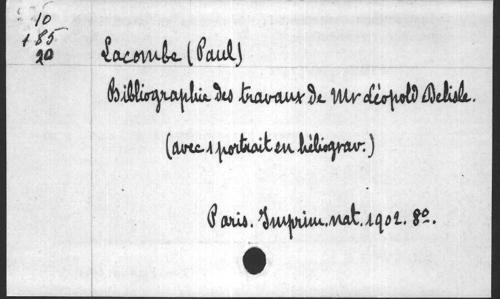 10
+ 85
20
Lacombe (Paul)
Bibliographie des travaux de Mr Léopold Delisle.
(avec 1 portrait en héliograv.)
Paris. Imprim. nat. 1902. 8º.